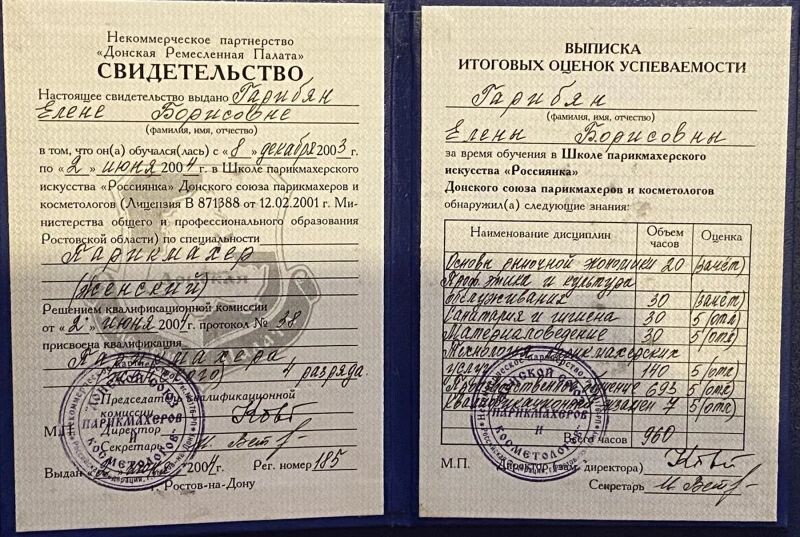 Некоммерческое партнерство
«Донская Ремесленная Палата»
СВИДЕТЕЛЬСТВО
Настоящее свидетельство выдано Гарибян
Елене Борисовне
(фамилия, имя, отчество)
в том, что он(а) обучался(лась) с «8» декабря 2003 г.
по «2» июня 2004 г. в Школе парикмахерского
искусства «Россиянка» Донского союза парикмахеров и
косметологов (Лицензия В 871388 от 12.02.2001 г. Ми-
нистерства общего и профессионального образования
Ростовской области) по специальности
Парикмахер
(женский)
Решением квалификационной комиссии
от «2» июня 2004 г. протокол № 38
присвоена квалификация
Парикмахера
4 разряда.
Председатель квалификационной
комиссии
Директор
М.П.
Секретарь
Выдан 2004 г. Рег. номер 185
г. Ростов-на-Дону
ПАРИКМАХЕРОВ
И
КОСМЕТОЛОГОВ
ВЫПИСКА
ИТОГОВЫХ ОЦЕНОК УСПЕВАЕМОСТИ
Гарибян
(фамилия, имя, отчество)
Елены Борисовны
за время обучения в Школе парикмахерского
искусства «Россиянка»
Донского союза парикмахеров и косметологов
обнаружил(а) следующие знания:
Наименование дисциплин Объем часов Оценка
Основы рыночной экономики 20 (зачёт)
Проф этика и культура
обслуживания 30 (зачёт)
Санитария и гигиена 30 5 (отл)
Материаловедение 30 5 (отл)
Технология парикмахерских
услуг 140 5 (отл)
Производственное обучение 693 5 (отл)
Квалификационный экзамен 7 5 (отл)
Всего часов 960
М.П. Директор (зам. директора)
Секретарь
ДОНСКОЙ СОЮЗ
ПАРИКМАХЕРОВ
И
КОСМЕТОЛОГОВ